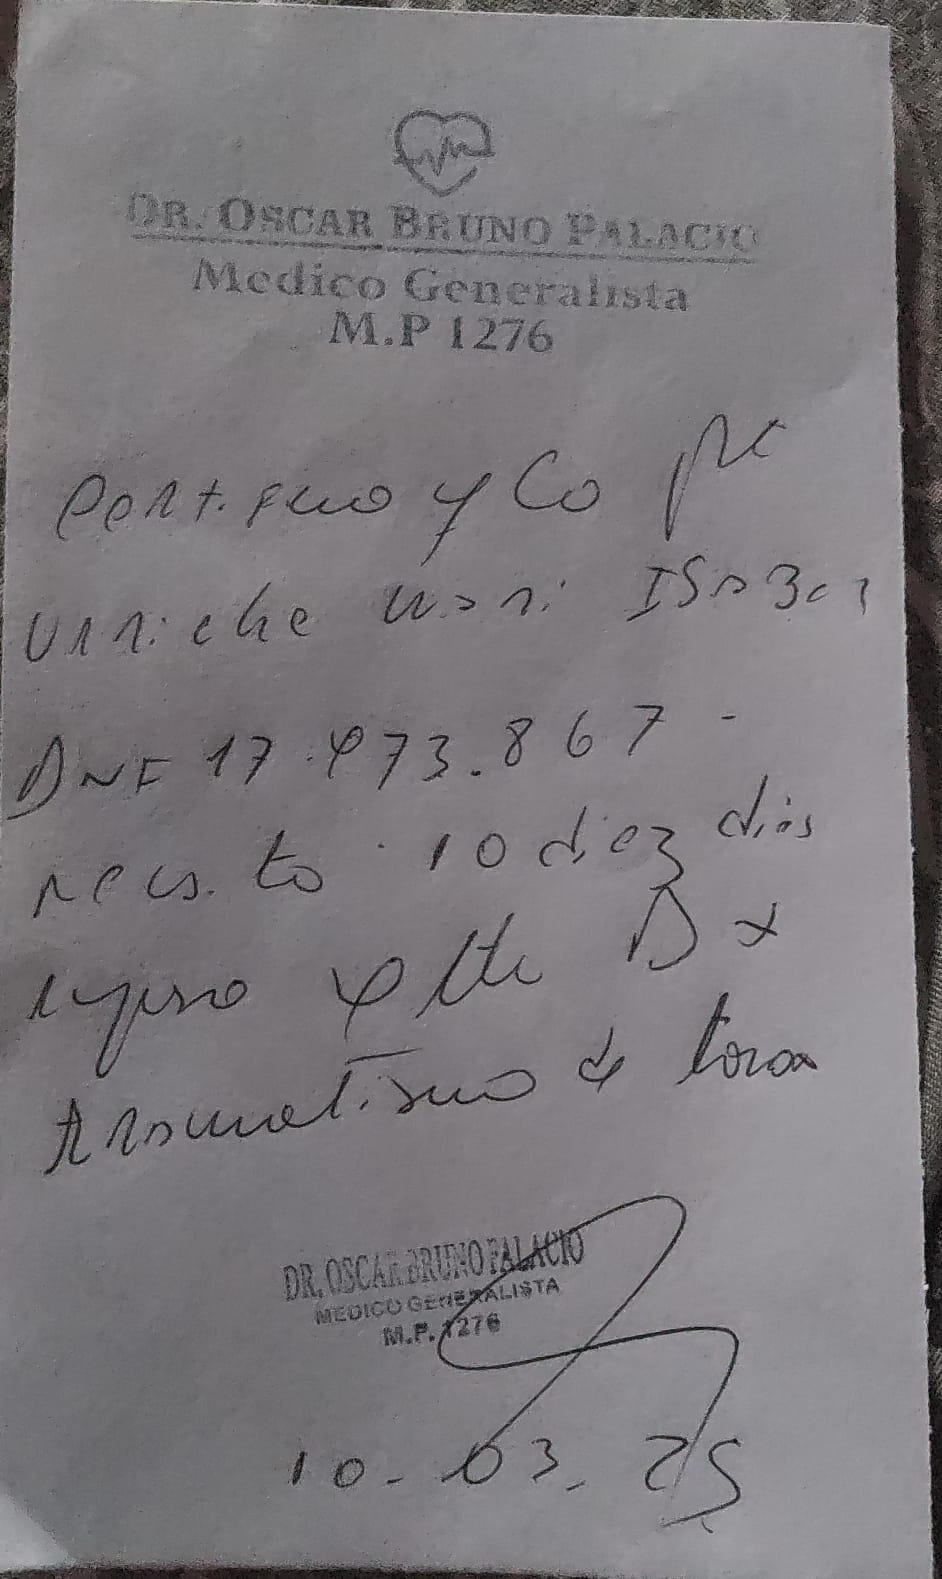 DR. OSCAR BRUNO PALACIO
Medico Generalista
M.P 1276
Certifico y Co pte
Urriche
DNI 17.473.867-
10 diez días
Dx
traumatismo de torax
DR. OSCAR BRUNO PALACIO
MEDICO GENERALISTA
M.P. 1276
10-03-25